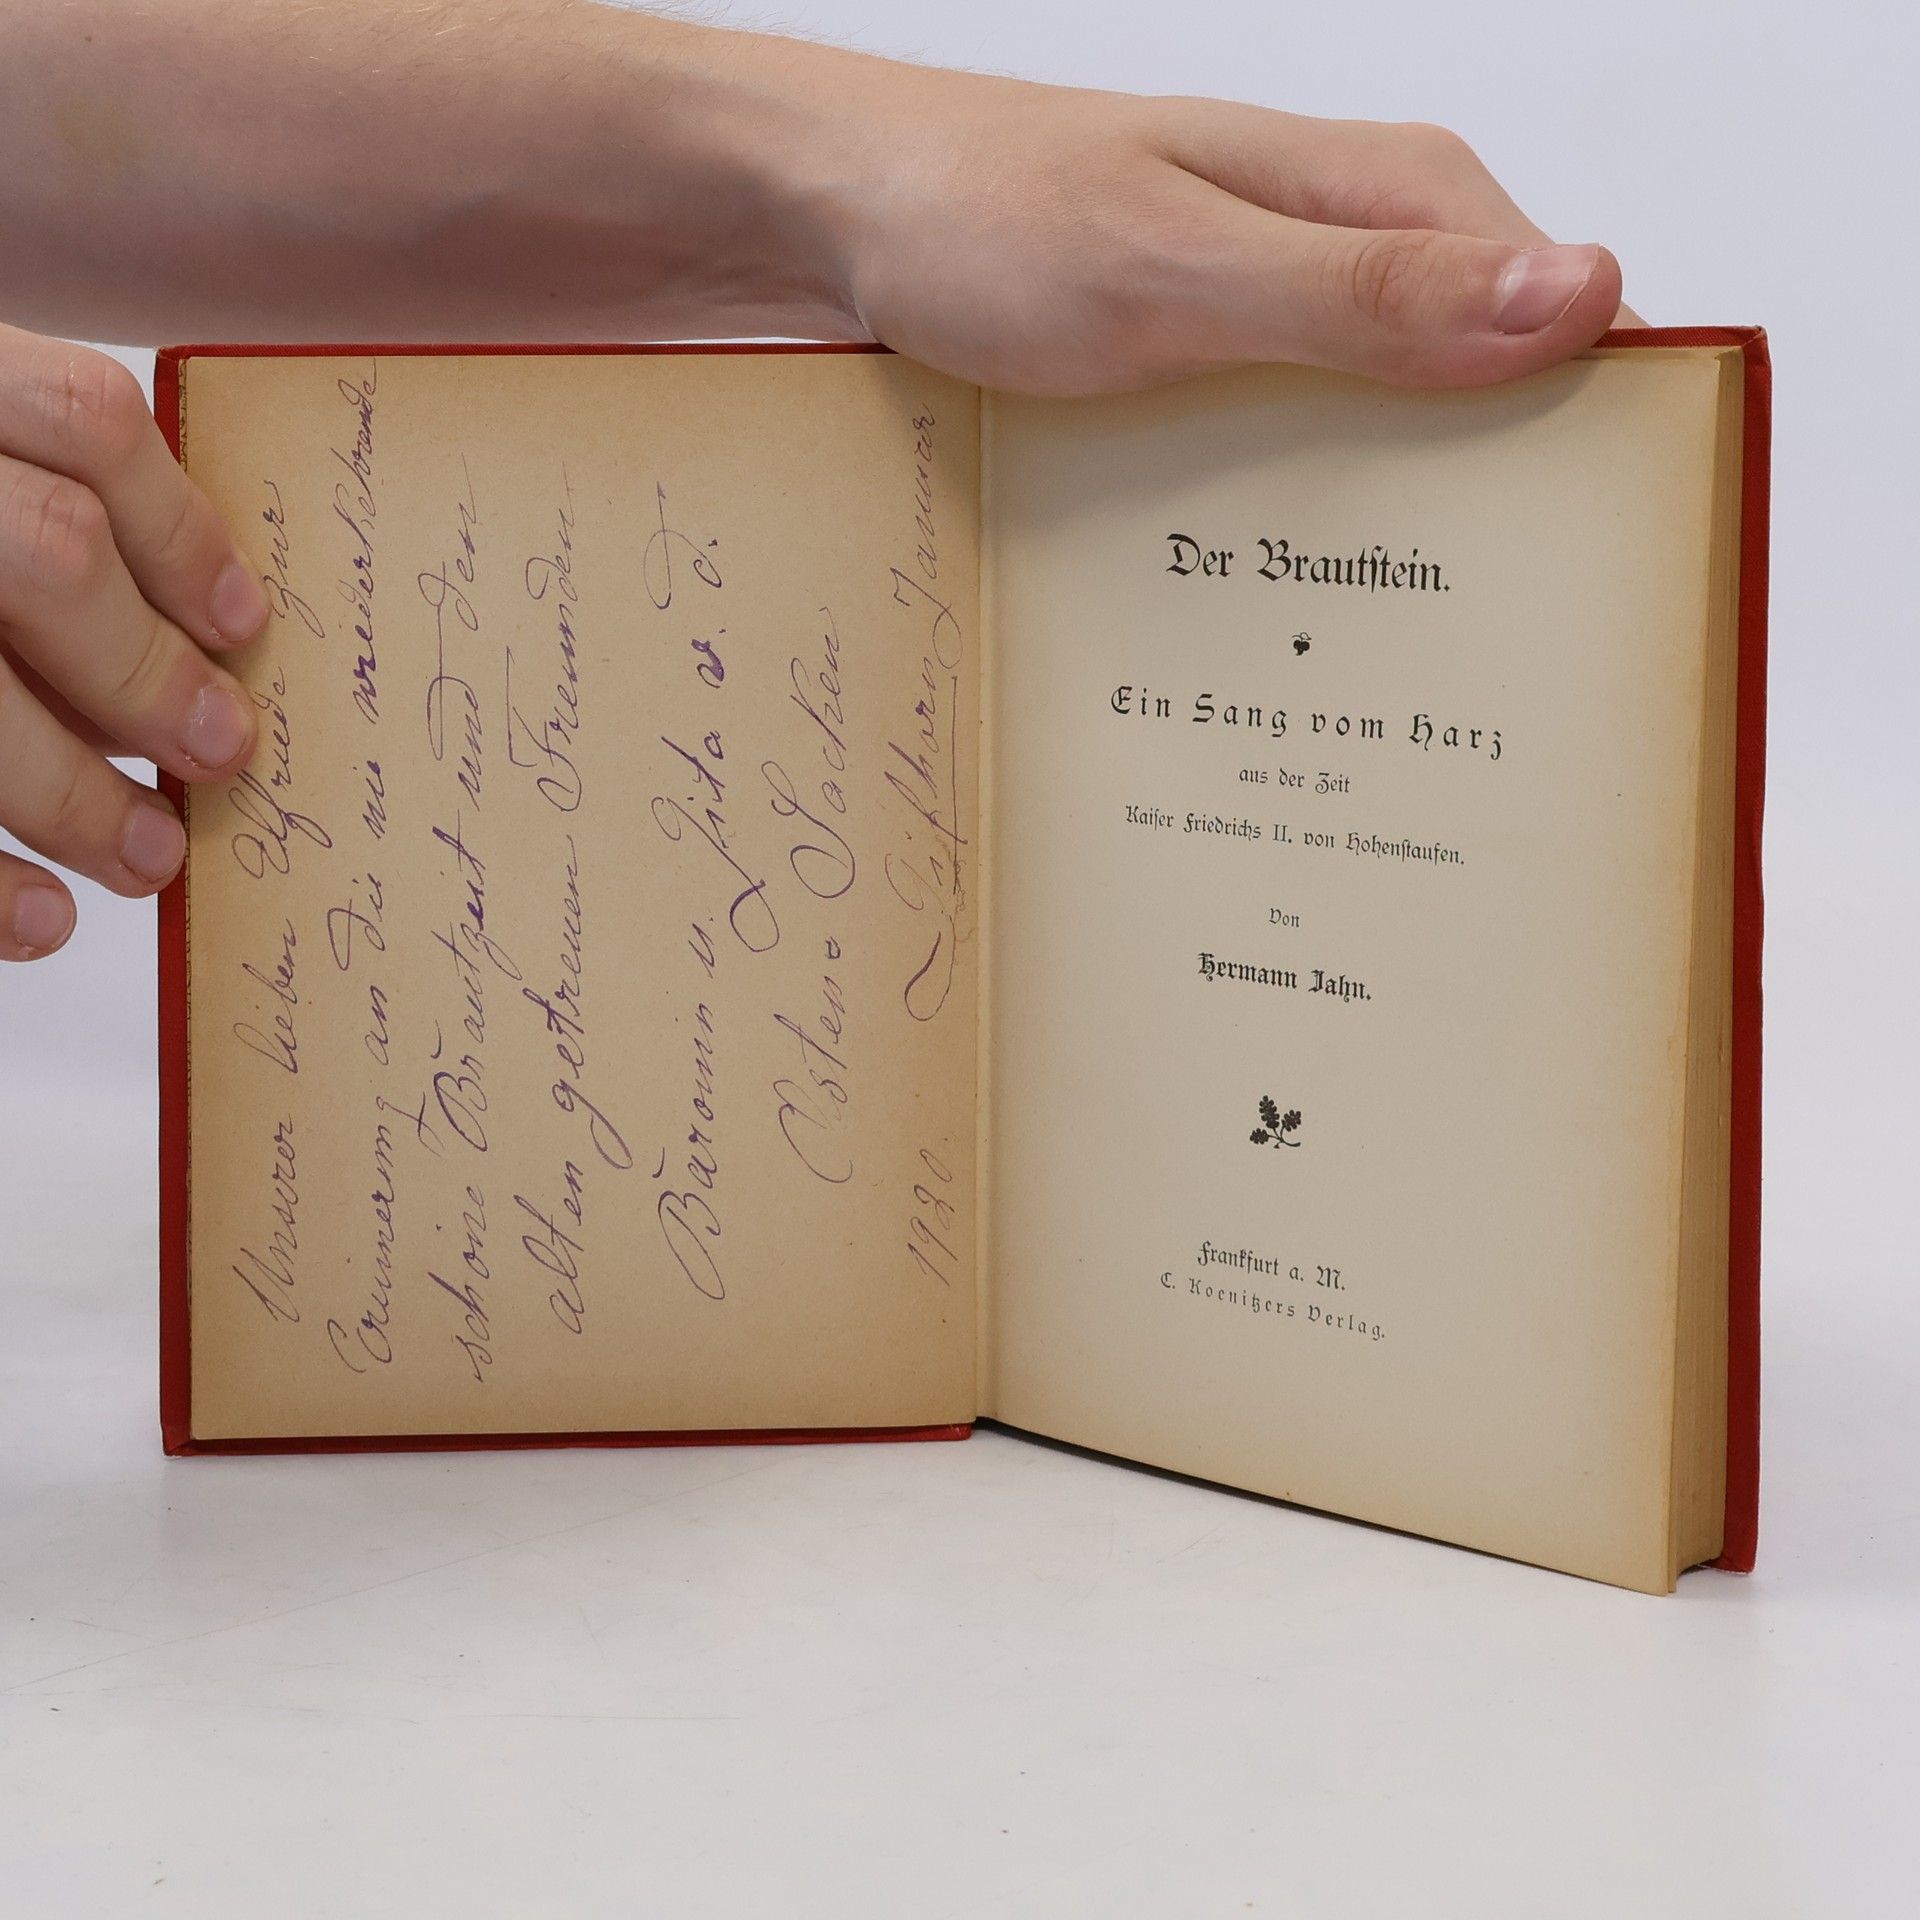 Unsrer lieben Elfriede zur
Erinnerung an die nie wiederkehrende
schöne Brautzeit und den
alten getreuen Freunden
Baronin u. Gita v. d.
Osten-Sacken
Gifhorn Januar
1920.
Der Brautstein.
Ein Sang vom Harz
aus der Zeit
Kaiser Friedrichs II. von Hohenstaufen.
Von
Hermann Jahn.
Frankfurt a. M.
C. Koenitzers Verlag.